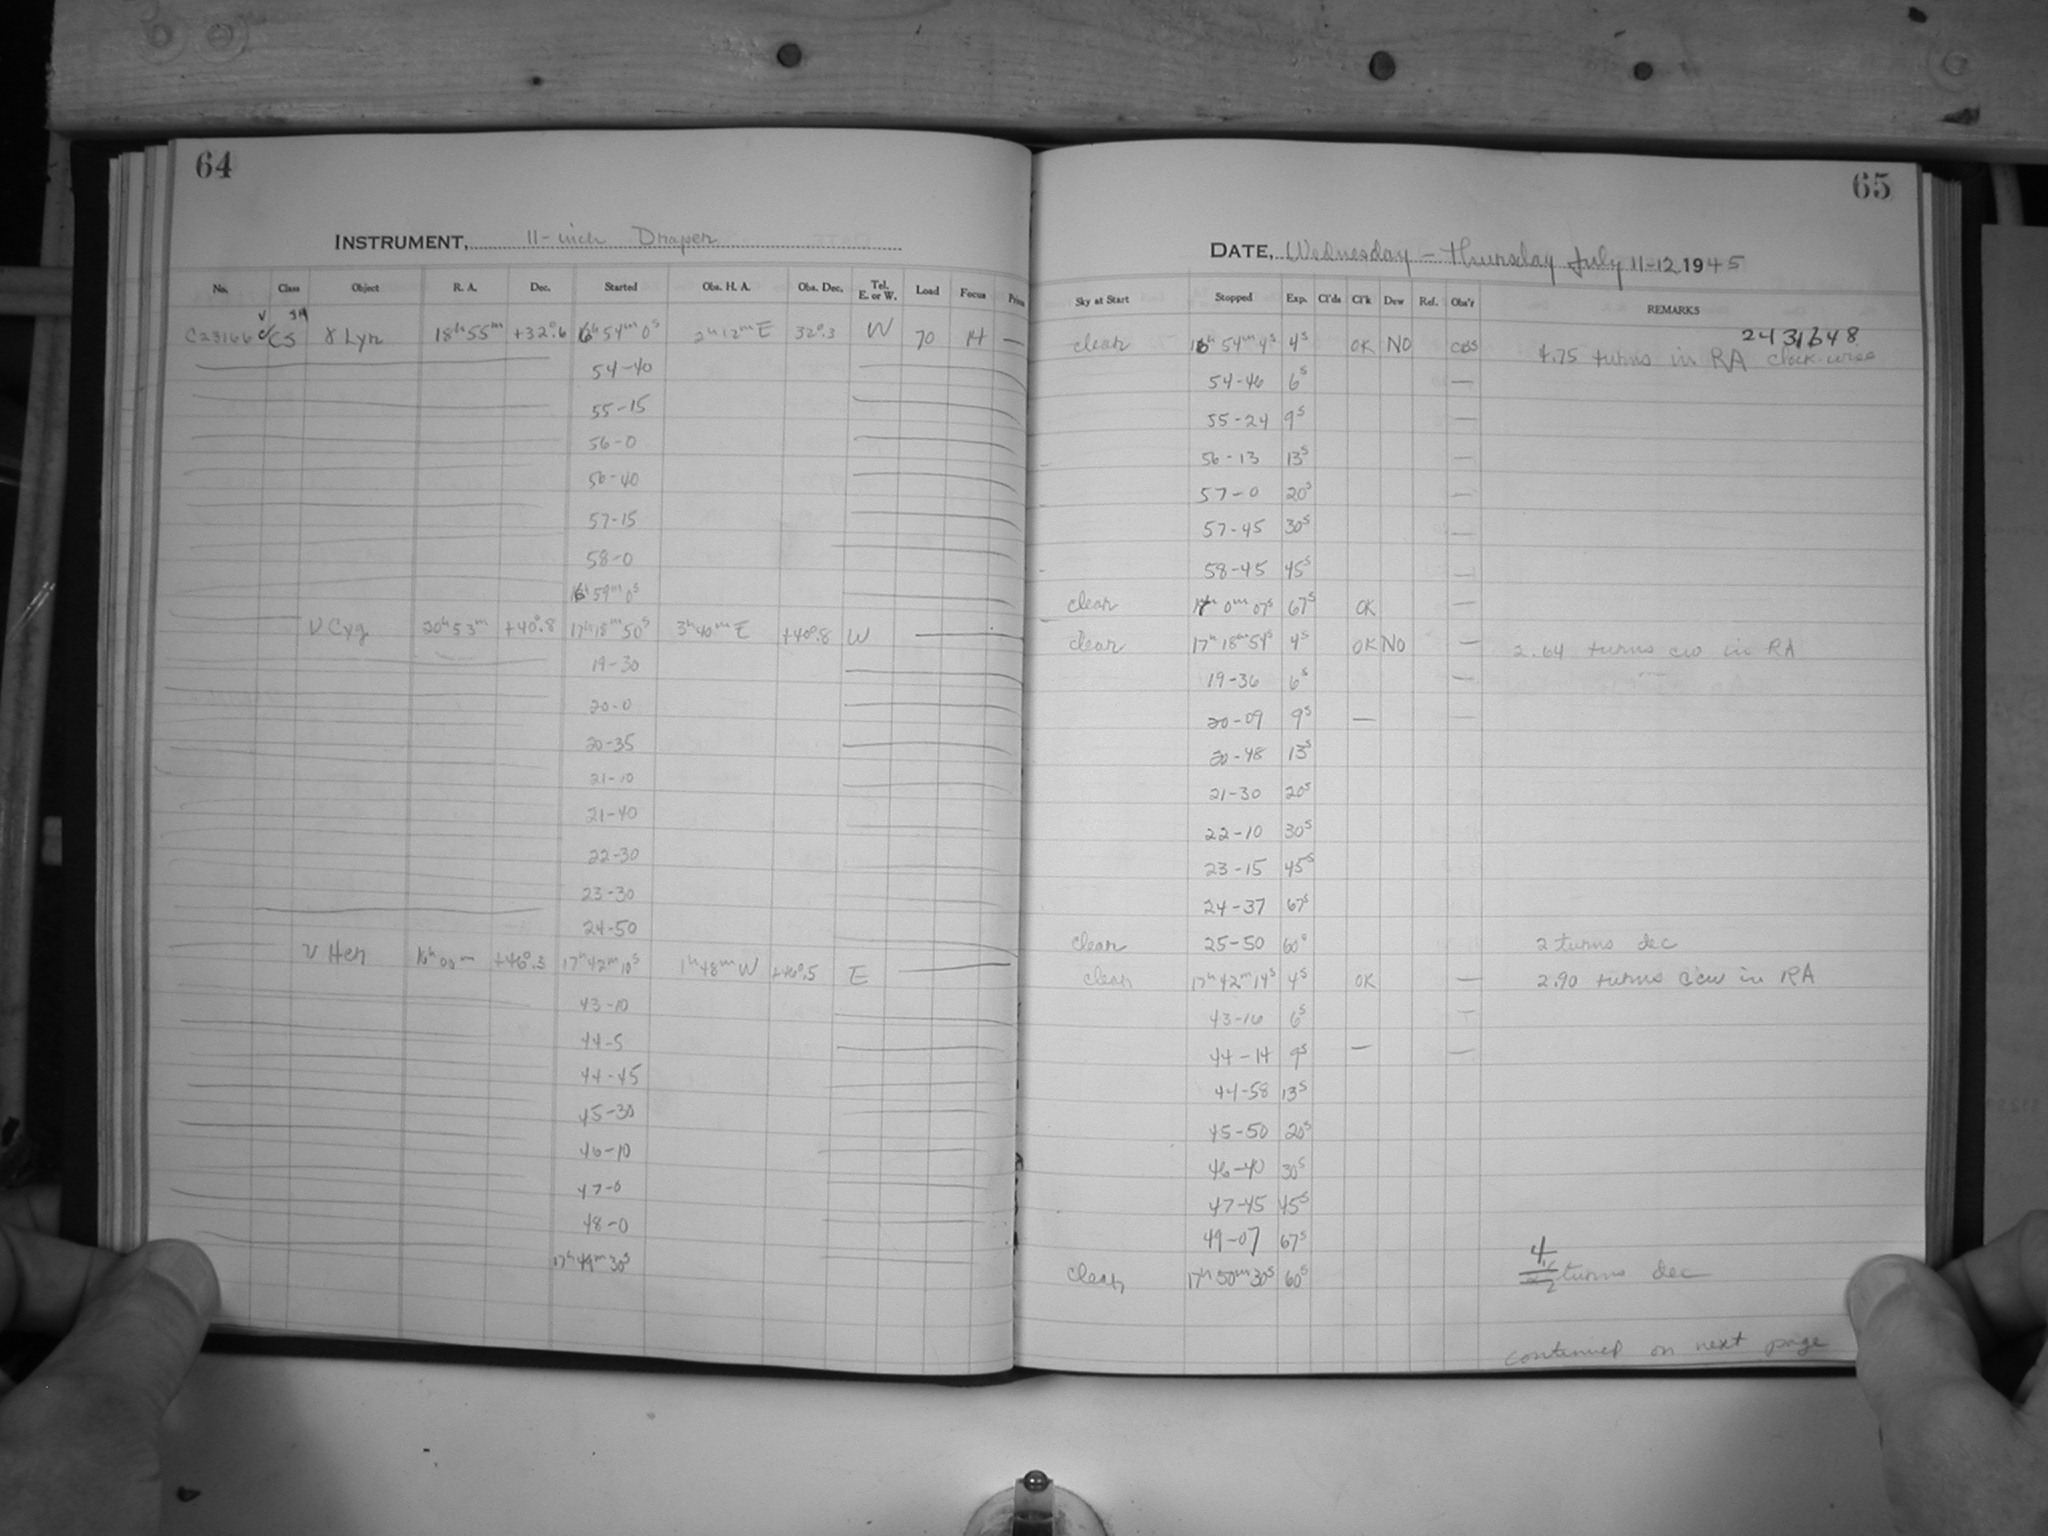 64
INSTRUMENT, 11-inch Draper
No. Class Object R. A. Dec. Started Obs. H. A. Obs. Dec. Tel. E. or W. Load Focus
C23166 CS γ Lyr 18h 55m +32°.6 16h 54m 0s 2h 12m E 32°.3 W 70 H —
54-40
55-15
56-0
56-40
57-15
58-0
16h 59m 0s
ν Cyg 20h 53m +40°.8 17h 18m 50s 3h 40m E +40°.8 W
19-30
20-0
20-35
21-10
21-40
22-30
23-30
24-50
υ Her 16h 00m +46°.3 17h 42m 10s 1h 48m W +46°.5 E
43-10
44-5
44-45
45-30
46-10
47-0
48-0
17h 49m 30s
65
DATE, Wednesday - Thursday July 11-12 1945
Sky at Start Stopped Exp. Cl'ds Cl'k Dew Ref. Obs'r REMARKS
2431648
clear 16h 54m 4s 4s OK NO 4.75 turns in RA clock-wise
54-46 6s —
55-24 9s —
56-13 13s —
57-0 20s —
57-45 30s —
58-45 45s —
clear 17h 0m 07s 67s OK —
clear 17h 18m 54s 4s OK NO — 2.64 turns cw in RA
19-36 6s —
20-09 9s — —
20-48 13s
21-30 20s
22-10 30s
23-15 45s
24-37 67s
clear 25-50 60s 2 turns dec
clear 17h 42m 14s 4s OK — 2.90 turns ccw in RA
43-16 6s —
44-14 9s — —
44-58 13s
45-50 20s
46-40 30s
47-45 45s
49-07 67s
clear 17h 50m 30s 60s 4 turns dec
continued on next page